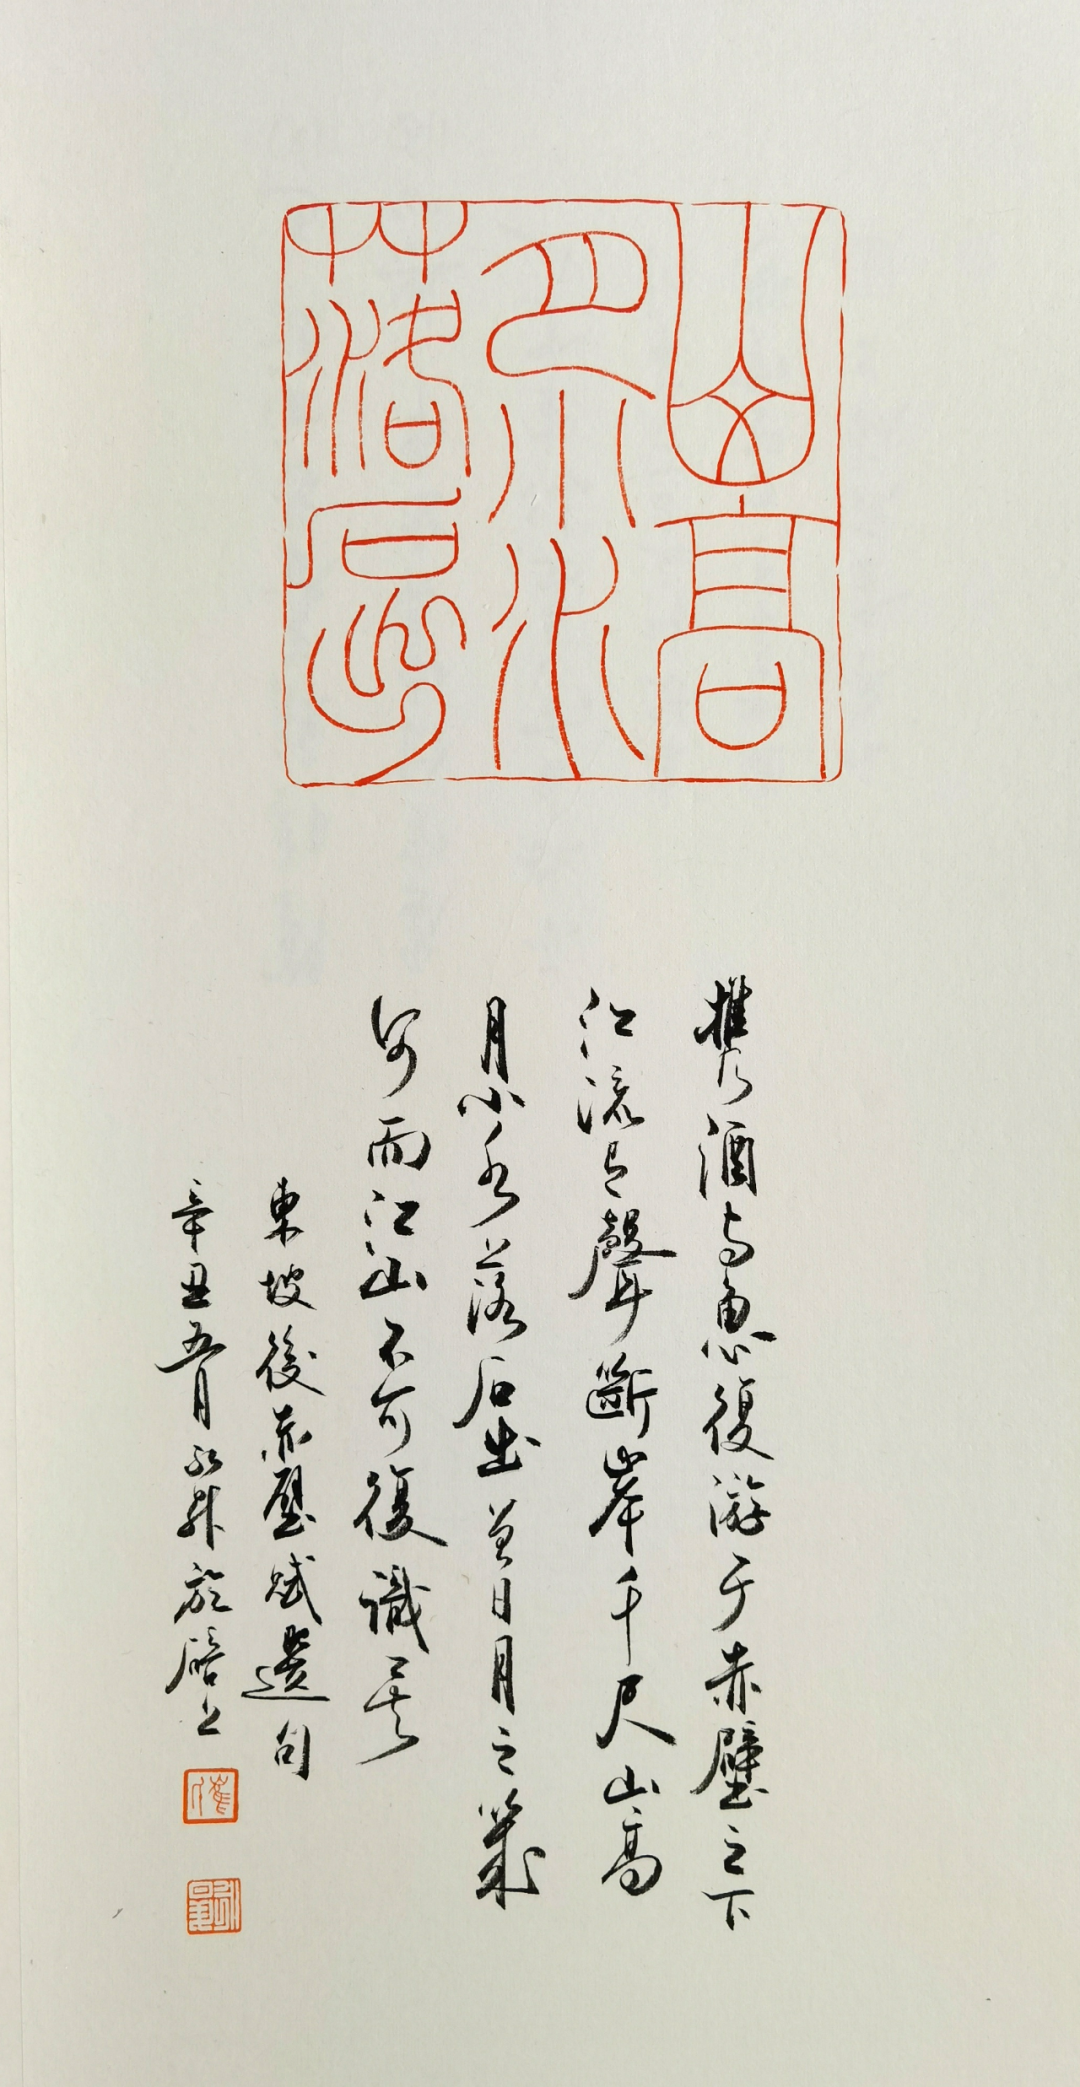 山高
月小水
落石出
携酒与魚復游于赤壁之下
江流有聲斷岸千尺山高
月小水落石出曾日月之幾
何而江山不可復識矣
東坡後赤壁賦遺句
辛丑五月 於